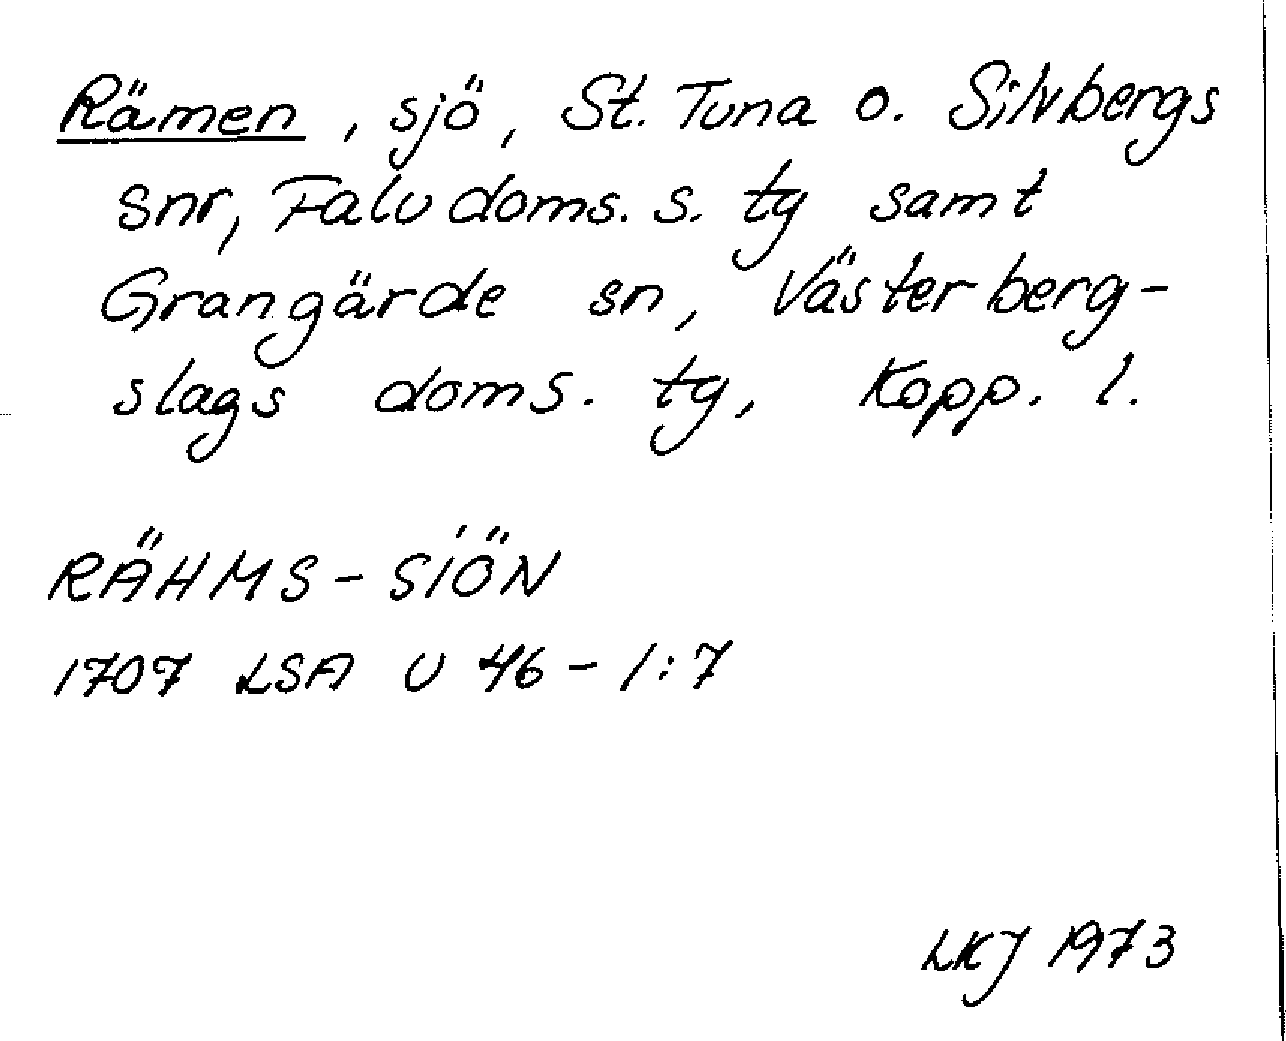 Rämen, sjö, St. Tuna o. Silvbergs
snr, Falu doms. s. tg samt
Grangärde sn, Västerberg-
slags doms. tg, Kopp. l.
RÄHMS-SIÖN
1707 LSA U 46-1:7
LKJ 1973